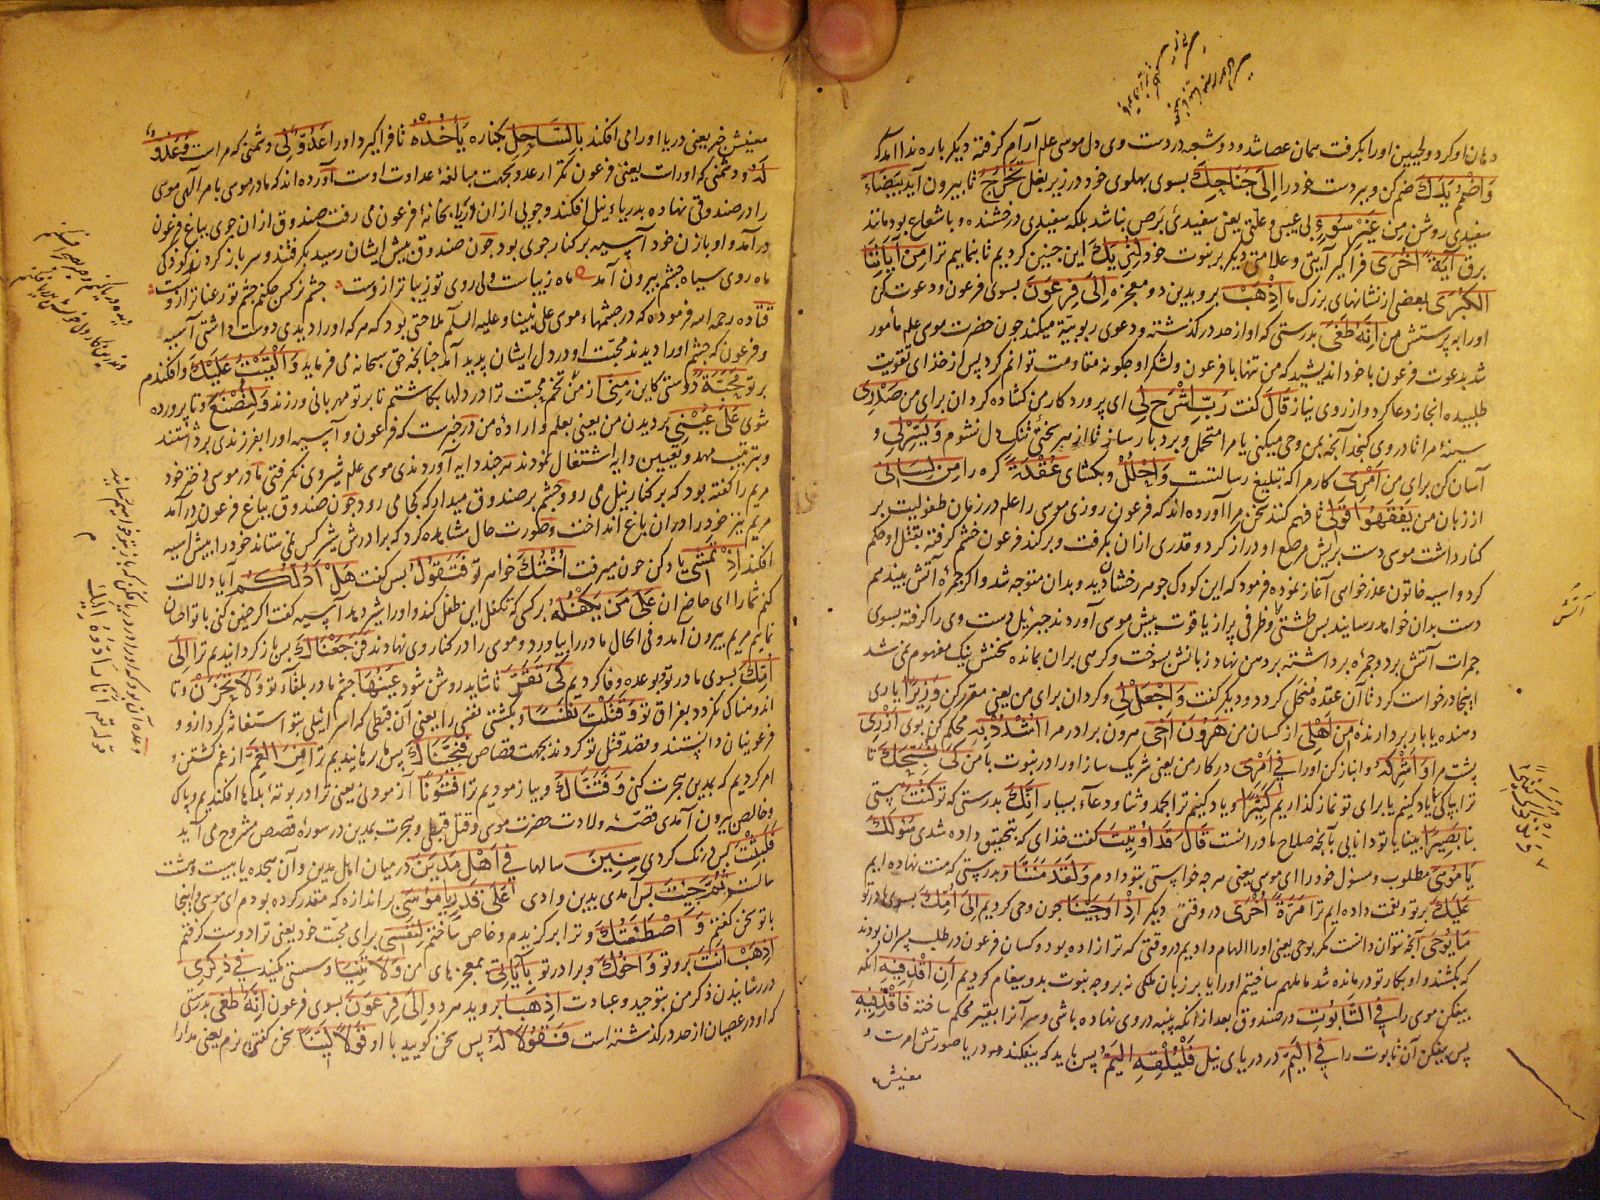 دهان او کرد و لحیین او را بگرفت همان عصا شد و دو شعبه در دست وی دل موسی علم آرام گرفته دیگر باره ندا آمد که
وَاضْمُمْ يَدَكَ ضم کن و ببر دست خود را اِلٰى جَنَاحِكَ بسوی پهلوی خود در زیر بغل تَخْرُجْ تا بیرون آید بَيْضَاءَ
سفیدی روشن مِنْ غَيْرِ سُوْءٍ بی عیبی و علتی یعنی سفیدی برص نباشد بلکه سفیدی درخشنده و با شعاع بود مانند
برق اٰيَةً اُخْرٰى فراگیر آیتی و علامتی دیگر بر نبوت خود لِنُرِيَكَ این چنین کردیم تا بنماییم ترا مِنْ اٰيَاتِنَا
الْكُبْرٰى بعضی از نشانهای بزرگ ما اِذْهَبْ برو بدین دو معجزه اِلٰى فِرْعَوْنَ بسوی فرعون و دعوت کن
او را به پرستش من اِنَّهُ طَغٰى بدرستی که او از حد در گذشته و دعوی ربوبیّة میکند چون حضرت موسی علم مأمور
شد بدعوت فرعون با خود اندیشید که من تنها با فرعون و لشکر او چگونه مقاومت توانم کرد پس از خدای تقویت
طلبیده انجاز دعا کرد و از روی نیاز قَالَ گفت رَبِّ اشْرَحْ لِى ای پروردگار من گشاده گردان برای من صَدْرِى
سینهٔ مرا تا در وی گنجد آنچه بمن وحی میکنی یا مرا متحمل و بردبار ساز تا از هر سخنی تنگ دل نشوم وَيَسِّرْلِى و
آسان کن برای من اَمْرِى کار مرا که تبلیغ رسالتست وَاحْلُلْ و بگشای عُقْدَةً گره را مِنْ لِسَانِى
از زبان من يَفْقَهُوا قَوْلِى تا فهم کنند سخن مرا آورده‌اند که فرعون روزی موسی را علم در زمان طفولیت بر
کنار داشت موسی دست بریش مرصع او دراز کرد و قدری از ان بگرفت و برکند فرعون خشم گرفته بقتل او حکم
کرد و اسیه خاتون عذرخواهی آغاز نموده فرمود که این کودک جوهر رخشان دید و بدان متوجه شد و اگر جمرهٔ آتش بیند هم
دست بدان خواهد رسانید پس طشتی و ظرفی پر از یاقوت پیش موسی آوردند جبرئیل دست وی را گرفته بسوی
جمرات آتش برد و جمرهٔ برداشته بر دهن نهاد زبانش بسوخت و گرهی بران بمانده سخنش نیک مفهوم نمی شد
اینجا درخواست کرد تا آن عقده منحل گردد و دیگر گفت وَاجْعَلْ لِى و گردان برای من یعنی مقرر کن وَزِيْرًا یاری
دهنده یا بار بردارنده مِنْ اَهْلِى از کسان من هٰرُوْنَ اَخِى هرون برادر مرا اشْدُدْ بِهٖ محکم کن بوی اَزْرِى
پشت مرا وَاَشْرِكْهُ و انباز کن او را فِىْ اَمْرِى در کار من یعنی شریک ساز او را در نبوت با من كَىْ نُسَبِّحَكَ تا
ترا بپاکی یاد کنیم یا برای تو نماز گذاریم كَثِيْرًا و یاد کنیم ترا بحمد و ثنا و دعاء بسیار اِنَّكَ بدرستی که تو كُنْتَ هستی
بِنَا بَصِيْرًا بینا یا تو دانایی بآنچه صلاح ما در انست قَالَ قَدْ اُوْتِيْتَ گفت خدای که بتحقیق داده شدی سُؤْلَكَ
يَا مُوْسٰى مطلوب و مسئول خود را ای موسی یعنی هرچه خواستی بتو دادم وَلَقَدْ مَنَنَّا و بدرستی که منت نهاده ایم
عَلَيْكَ بر تو و نعمت داده ایم ترا مَرَّةً اُخْرٰى در وقتی دیگر اِذْ اَوْحَيْنَا چون وحی کردیم اِلٰى اُمِّكَ بسوی مادر تو
مَا يُوْحٰى آنچه نتوان دانست مگر بوحی یعنی او را الهام دادیم در وقتی که ترا زاده بود و کسان فرعون در طلب پسران بودند
که بکشند و او بکار تو در مانده شد ما ملهم ساختیم او را یا بر زبان ملکی نه بر وجه نبوت بدو پیغام کردیم اَنِ اقْذِفِيْهِ آنکه
بیفکن موسی را فِى التَّابُوْتِ در صندوق بعد از انکه پنبه در وی نهاده باشی و سر آن را بقیر محکم ساخته فَاقْذِفِيْهِ
پس بیفکن آن تابوت را فِى الْيَمِّ در دریای نیل فَلْيُلْقِهِ الْيَمُّ پس باید که بیفکند دریا صورتش امر است و
معنیش
آتش
معنیش خبر یعنی دریا او را می افکند بِالسَّاحِلِ بکناره يَأْخُذْهُ تا فراگیرد او را عَدُوٌّ لِى دشمنی که مراست وَعَدُوٌّ
لَهُ و دشمنی که او راست یعنی فرعون تکرار عدو بجهت مبالغهٔ عداوت اوست آورده‌اند که مادر موسی بامر الهی موسی
را در صندوقی نهاده بدریاء نیل افکند و جویی از ان دریا بخانهٔ فرعون می رفت صندوق از ان جوی بباغ فرعون
درآمد و او با زن خود آسیه بر کنار جوی بود چون صندوق پیش ایشان رسید بگرفتند و سر باز کردند کودکی
ماه روی سیاه چشم بیرون آمد ماه زیباست ولی روی تو زیباتر ازوست چشم نرگس چکنم چشم تو رعناتر ازوست
قتاده رحمه الله فرموده که در چشمهاء موسی علی نبینا و علیه السلم ملاحتی بود که هر که او را دیدی دوست داشتی آسیه
و فرعون که چشم او را دیدند محبّت او در دل ایشان پدید آمد چنانچه حق سبحانه می فرماید وَاَلْقَيْتُ عَلَيْكَ و افکندم
بر تو مَحَبَّةً دوستی کاین مِنِّى از من تخم محبت ترا در دلها بکاشتم تا بر تو مهربانی ورزند وَلِتُصْنَعَ و تا پرورده
شوی عَلٰى عَيْنِى بر دیدن من یعنی بعلم و ارادهٔ من در خبرست که فرعون و آسیه او را بفرزندی برداشتند
و بترتیب مهد و تعیین دایه اشتغال نمودند هر چند دایه آوردندی موسی علم شیر وی نگرفتی مادر موسی دختر خود
مریم را گفته بود که بر کنار نیل می رو و چشم بر صندوق میدار که کجا می رود چون صندوق بباغ فرعون درآمد
مریم نیز خود را در ان باغ انداخت و صورت حال مشاهده کرد که برادرش شیر کس نمی ستاند خود را پیش آسیه
افکند اِذْ تَمْشِى یاد کن چون میرفت اُخْتُكَ خواهر تو فَتَقُوْلُ پس گفت هَلْ اَدُلُّكُمْ آیا دلالت
کنم شما را ای حاضران عَلٰى مَنْ يَكْفُلُهُ بر کسی که تکفل این طفل کند و او را شیر دهد آسیه گفت اگر چنین کنی با تو احسان
نمایم مریم بیرون آمد و فی الحال مادر را بیاورد و موسی را در کنار وی نهادند فَرَجَعْنَاكَ پس باز گردانیدیم ترا اِلٰى
اُمِّكَ بسوی مادر تو و بوعده وفا کردیم كَىْ تَقَرَّ تا شاید روشن شود عَيْنُهَا چشم مادر بلقاء تو وَلَا تَحْزَنَ و تا
اندوهناک نگردد بفراق تو وَقَتَلْتَ نَفْسًا و بکشتی نفسی را یعنی آن قبطی که اسرائیلی بتو استغاثه کرد از و و
فرعونیان دانستند و قصد قتل تو کردند بجهت قصاص فَنَجَّيْنَاكَ پس برهانیدیم ترا مِنَ الْغَمِّ از غم کشتن و
امر کردیم که بمدین هجرت کنی وَفَتَنَّاكَ و بیازمودیم ترا فُتُوْنًا آزمودنی یعنی ترا در بوتهٔ بلاها افکندیم و پاک
و خالص بیرون آمدی قصّهٔ ولادت حضرت موسی و قتل قبطی و هجرت بمدین در سورهٔ قصص مشروح می آید
فَلَبِثْتَ پس درنگ کردی سِنِيْنَ سالها فِىْ اَهْلِ مَدْيَنَ در میان اهل مدین و آن هجده یا بیست و هشت
سالست ثُمَّ جِئْتَ پس آمدی بدین وادی عَلٰى قَدَرٍ يَا مُوْسٰى بر اندازه که مقدر کرده بودم ای موسی و اینجا
با تو سخن گفتم وَاصْطَنَعْتُكَ و ترا برگزیدم و خاص ساختم لِنَفْسِى برای محبت خود یعنی ترا دوست گرفتم
اِذْهَبْ اَنْتَ برو تو وَاَخُوْكَ و برادر تو بِاٰيَاتِى بمعجزهای من وَلَا تَنِيَا و سستی مکنید فِىْ ذِكْرِى
در رسانیدن ذکر من بتوحید و عبادت اِذْهَبَا بروید هر دو اِلٰى فِرْعَوْنَ بسوی فرعون اِنَّهُ طَغٰى بدرستی
که او در عصیان از حد در گذشته است فَقُوْلَا لَهُ پس سخن گویید با او قَوْلًا لَيِّنًا سخن گفتنی نرم یعنی مدارا